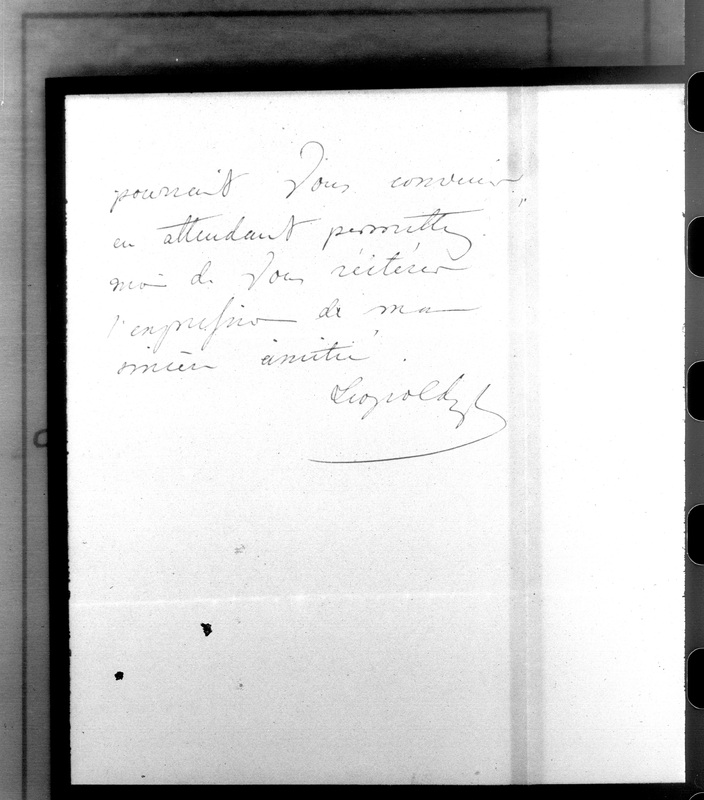 pourrait Vous convenir,
en attendant permettez
moi de Vous réitérer
l'expression de ma
sincère amitié.
Leopold